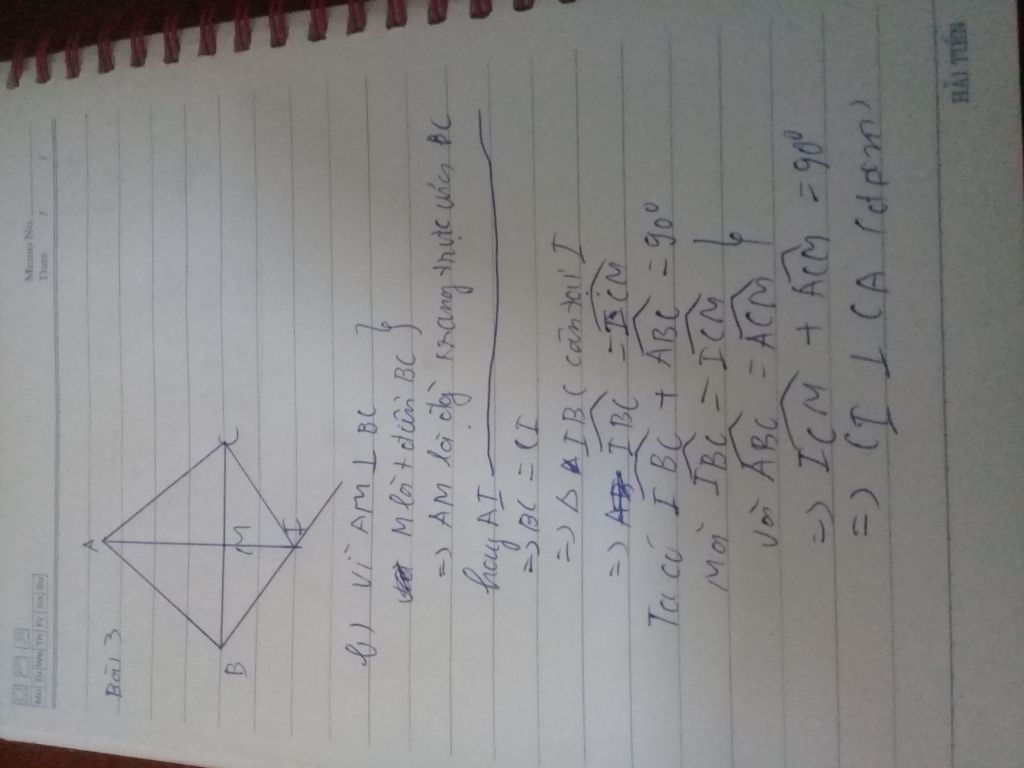 Memo No.
Date
Mo Tu We Th Fr Sa Su
Bài 3
A
B
M
C
I
b) Vì AM ⊥ BC }
M là t điểm BC }
=> AM là đg trung trực ứng BC
hay AI
=> BC = CI
=> Δ IBC cân tại I
=> IBC = ICM
Ta có IBC + ABC = 90⁰
Mà IBC = ICM }
Với ABC = ACM }
=> ICM + ACM = 90⁰
=> CI ⊥ CA (đpcm)
HẢI TIẾN